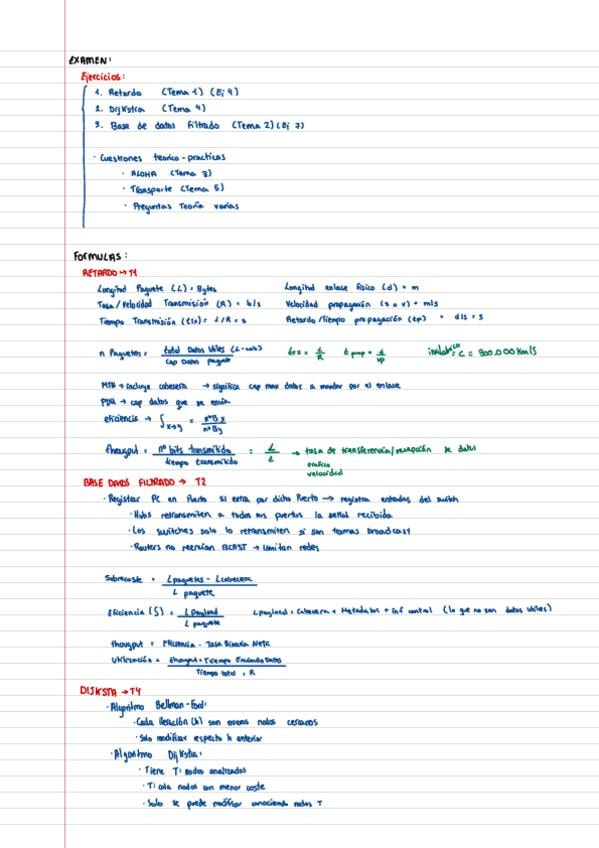 EXAMEN:
Ejercicios:
1. Retardo (Tema 1) (Ej 4)
2. Dijkstra (Tema 4)
3. Base de datos filtrado (Tema 2) (Ej 7)
· Cuestiones teorico-practicas
· ALOHA (Tema 3)
· Transporte (Tema 5)
· Preguntas Teoría varias
FORMULAS:
RETARDO → T1
Longitud Paquete (L) = Bytes Longitud enlace físico (d) = m
Tasa / Velocidad Transmisión (R) = b/s Velocidad propagación (s o v) = m/s
Tiempo Transmisión (tx) = L/R = s Retardo/Tiempo propagación (tp) = d/s = s
n Paquetes = total Datos Utiles (L-cab) / Cap Datos paquete tx = L/R t prop = d/vp inalámbrico = c = 300.000 Km/s
MTU → incluye cabecera → significa cap max datos a mandar por el enlace
PDU → cap datos que se envía
eficiencia → ∫x→y = nºBx / nºBy
throughput = nº bits transmitido / tiempo transmitido = L / t → tasa de transferencia/recepción de datos
trafico
velocidad
BASE DATOS FILTRADO → T2
· Registrar PC en Puerto si entra por dicho Puerto → registra entradas del switch
· Hubs retransmiten a todos sus puertos la señal recibida
· Los switches solo lo retransmiten si son tramas broadcast
· Routers no reenvían BCAST → limitan redes
Sobrecoste = Lpaquetes - Lcabecera / L paquete
Eficiencia (S) = L Payload / L paquete Lpayload = Cabecera + Metadatos + inf control (lo que no son datos utiles)
thougput = Eficiencia · Tasa Binaria Neta
Utilización = thougput · Tiempo Enviando Datos / Tiempo total = R
DIJKSTA → T4
· Algoritmo Bellman-Ford:
· Cada iteración (h) son nodos cercanos
· Solo modificar respecto h anterior
· Algoritmo Dijkstra:
· Tiene T: nodos analizados
· T: cola nodos con menor coste
· Solo se puede modificar conociendo nodos T